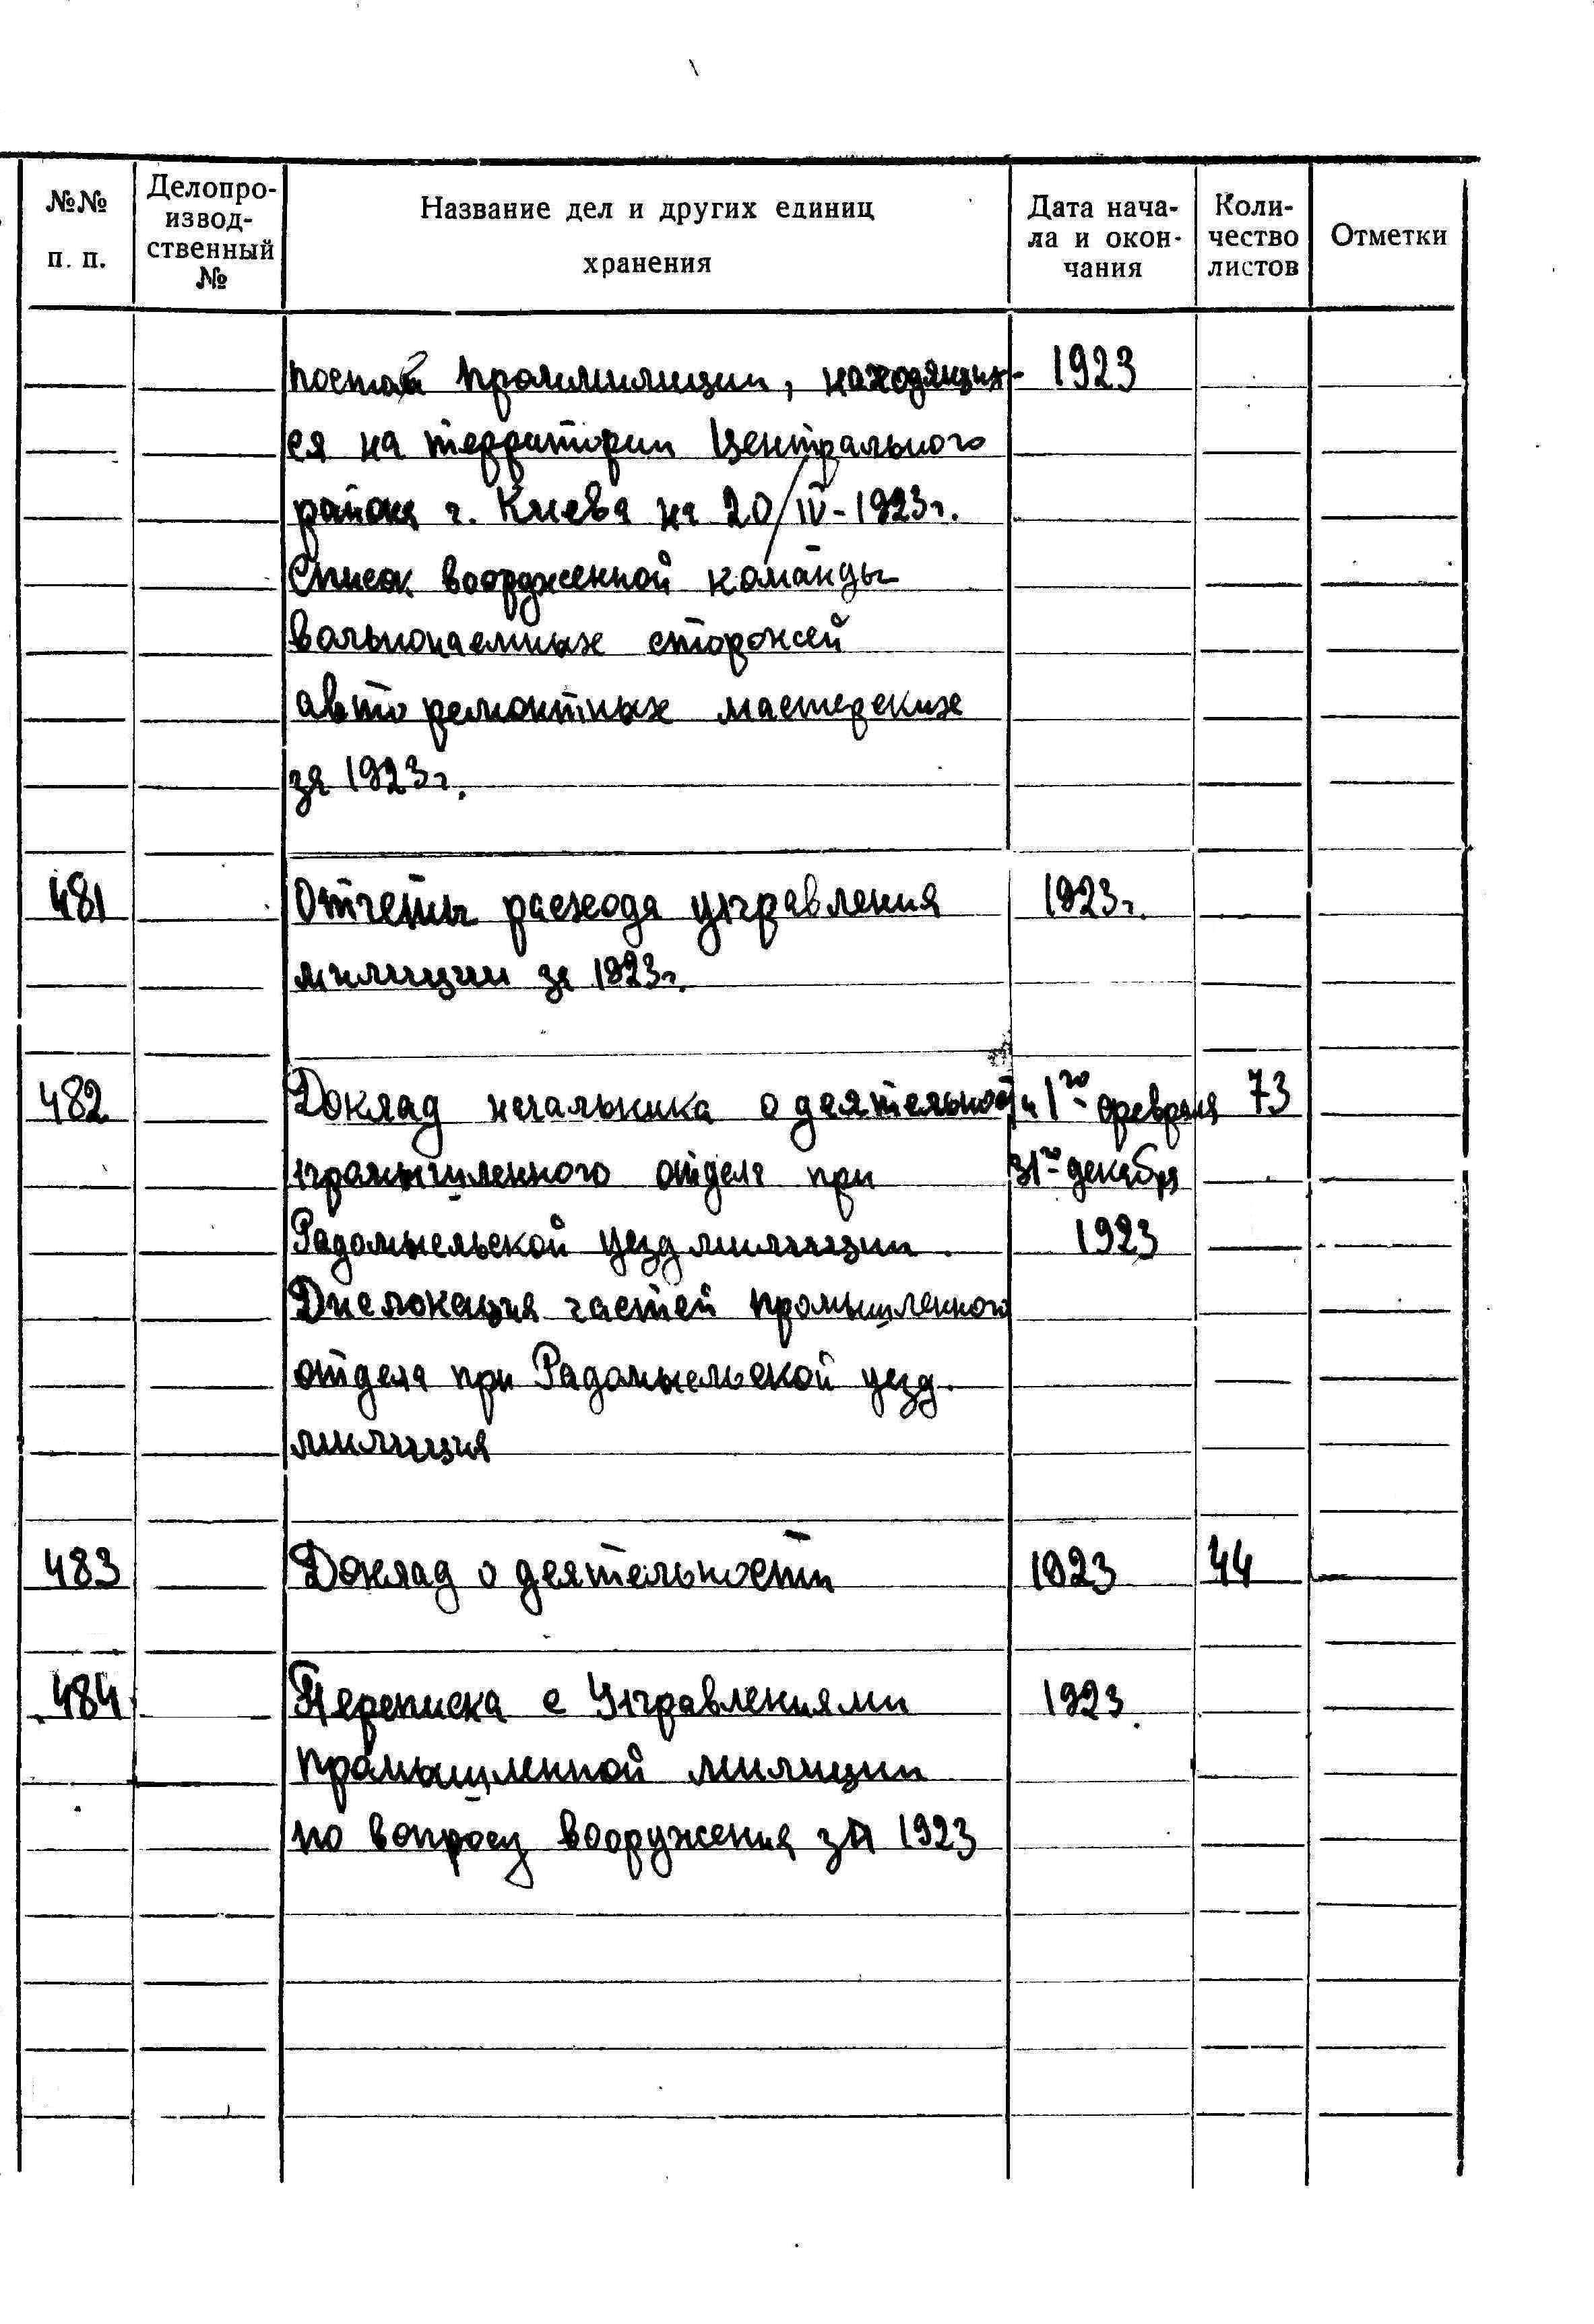 №№ п. п.
Делопро-
извод-
ственный
№
Название дел и других единиц
хранения
Дата нача-
ла и окон-
чания
Коли-
чество
листов
Отметки
постов проммилиции, находящих- 1923
ся на территории Центрального
района г. Киева на 20/IV-1923г.
Список вооруженной команды
вольнонаемных сторожей
авторемонтных мастерских
за 1923г.
481 Отчеты расхода управления 1923г.
милиции за 1923г.
482 Доклад начальника о деятельности 1го февраля 73
промышленного отдела при 31го декабря
Радомысльской уезд милиции. 1923
Дислокация частей промышленного
отдела при Радомысльской уезд.
милиция
483 Доклад о деятельности 1923 44
484 Переписка с Управлениями 1923
промышленной милиции
по вопросу вооружения за 1923